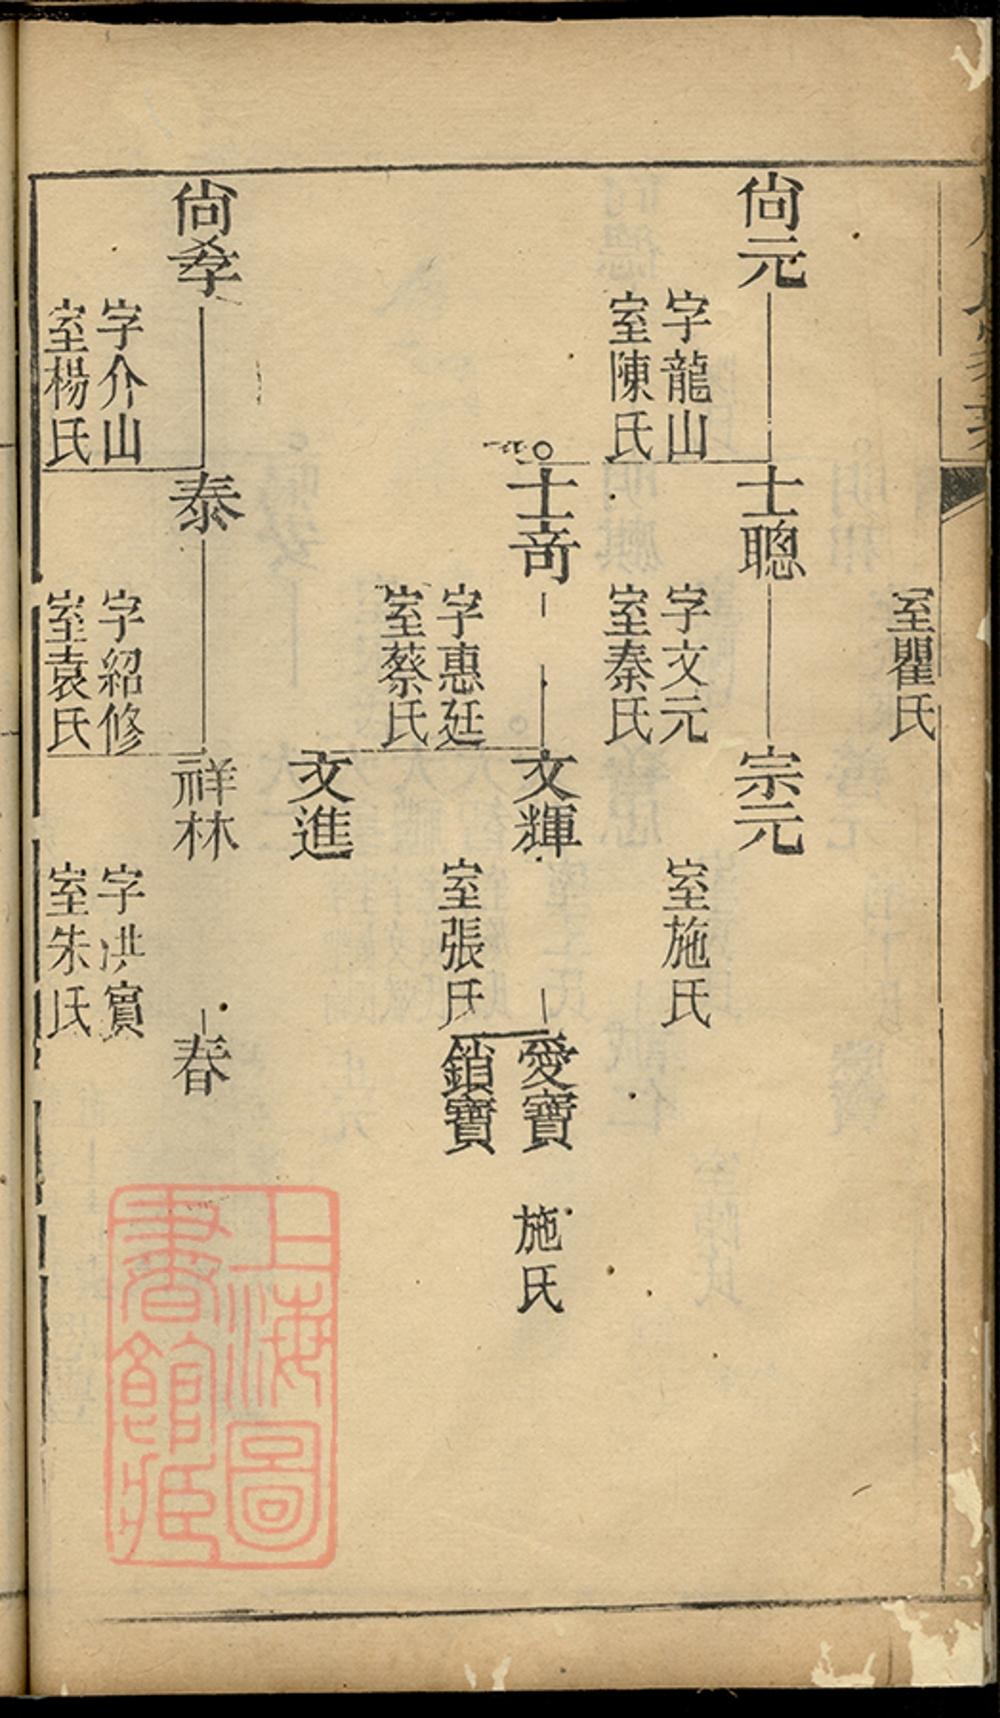 室瞿氏
尙元
字龍山
室陳氏
士聰
字文元
室秦氏
宗元
室施氏
士奇
字惠廷
室蔡氏
文輝
室張氏
愛寶
施氏
鎖寶
文進
尙孝
字介山
室楊氏
泰
字紹修
室袁氏
祥林
字洪寶
室朱氏
春
上海圖
書館藏